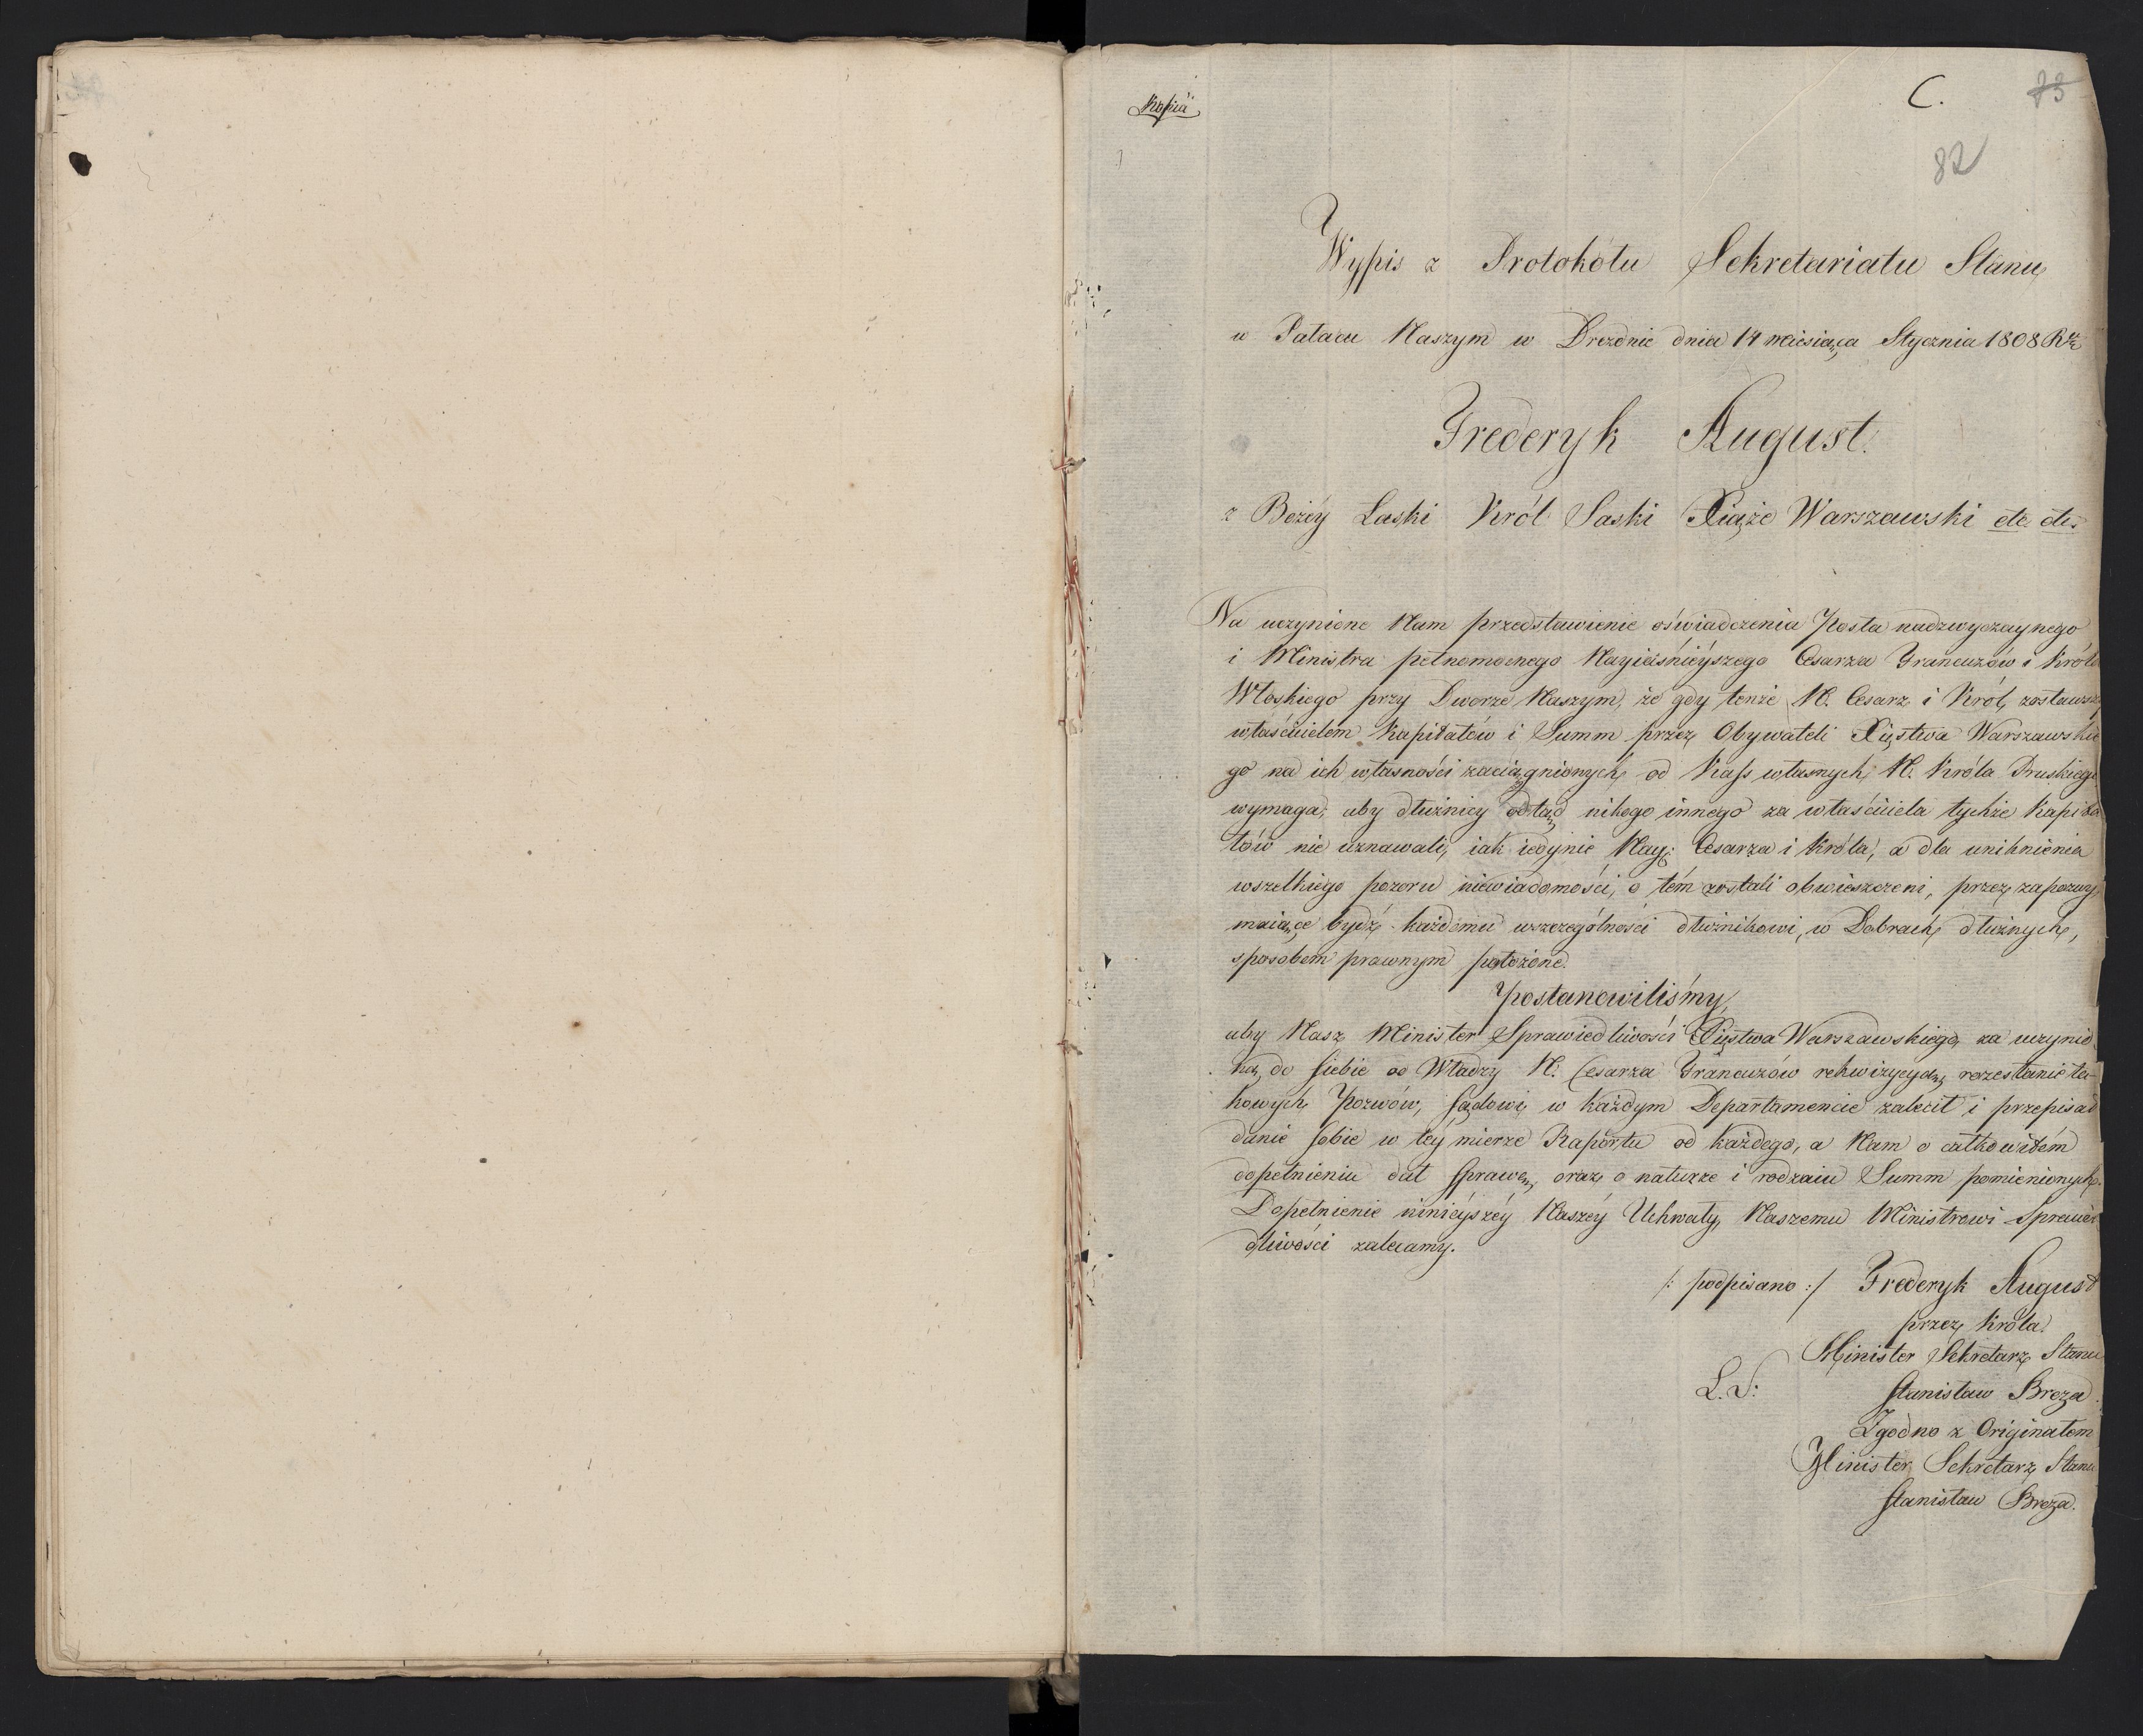 Kopia
C.
73
82
Wypis z Protokółu Sekretariatu Stanu
w Pałacu Naszym w Dreźnie dnia 14 miesiąca Stycznia 1808 Rku
Frederyk August.
z Bożéy Łaski Król Saski Xiąże Warszawski etc. etc.
Na uczynione Nam przedstawienie oświadczenia Posła nadzwyczaynego
i Ministra pełnomocnego Nayiaśnieyszego Cesarza Francuzów i Króla
Włoskiego przy Dworze Naszym, że gdy tenże N. Cesarz i Król, zostawszy
właścicielem Kapitałów i Summ przez Obywateli Xięstwa Warszawskie
go na ich własności zaciągnionych, od Kass własnych N. Króla Pruskiego
wymaga, aby dłużnicy odtąd nikogo innego za właściciela tychże Kapita
łów nie uznawali, iak iedynie Nay: Cesarza i Króla, a dla uniknienia
wszelkiego pozoru niewiadomości, o tém zostali obwieszczeni, przez zapozwy
maiące bydź każdemu wszczególności dłużnikowi, w Dobrach dłużnych,
sposobem prawnym położone.
Postanowiliśmy,
aby Nasz Minister Sprawiedliwości Xięstwa Warszawskiego, za uczynio
ną do siebie od Władzy N. Cesarza Francuzów rekwizycyą, rozesłanie ta-
kowych Pozwów, sądowi w każdym Departamencie zalecił i przepisał
danie sobie w téy mierze Raportu od każdego, a Nam o całkowitém
dopełnieniu dał sprawę, oraz o naturze i rodzaiu Summ pomienionych.
Dopełnienie ninieyszéy Naszéy Uchwały, Naszemu Ministrowi Sprawie
dliwości zalecamy.
/: podpisano :/ Frederyk August
przez Króla.
Minister Sekretarz Stanu
L.S: Stanisław Breza
Zgodno z Originałem
Minister Sekretarz Stanu
Stanisław Breza.